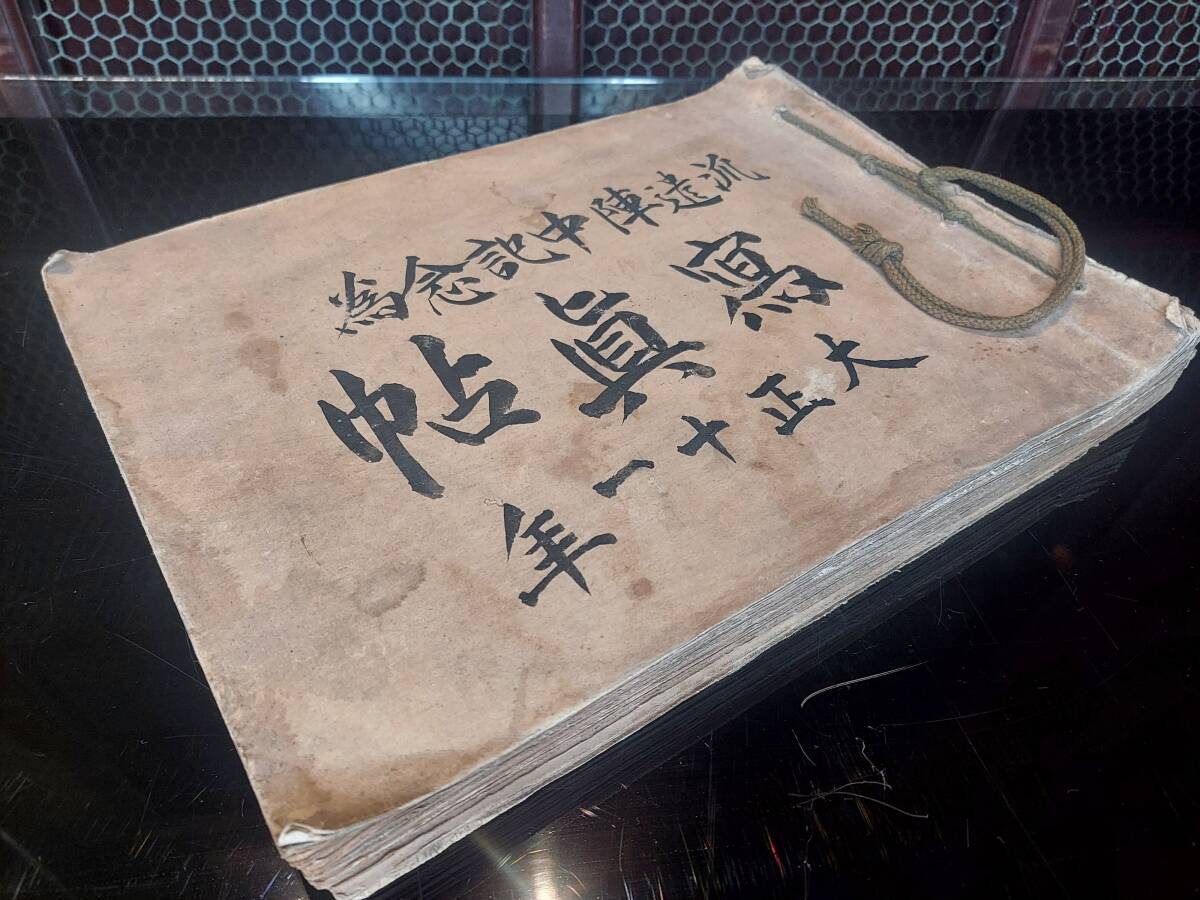 派遣陣中記念爲
寫眞帖
大正十一年